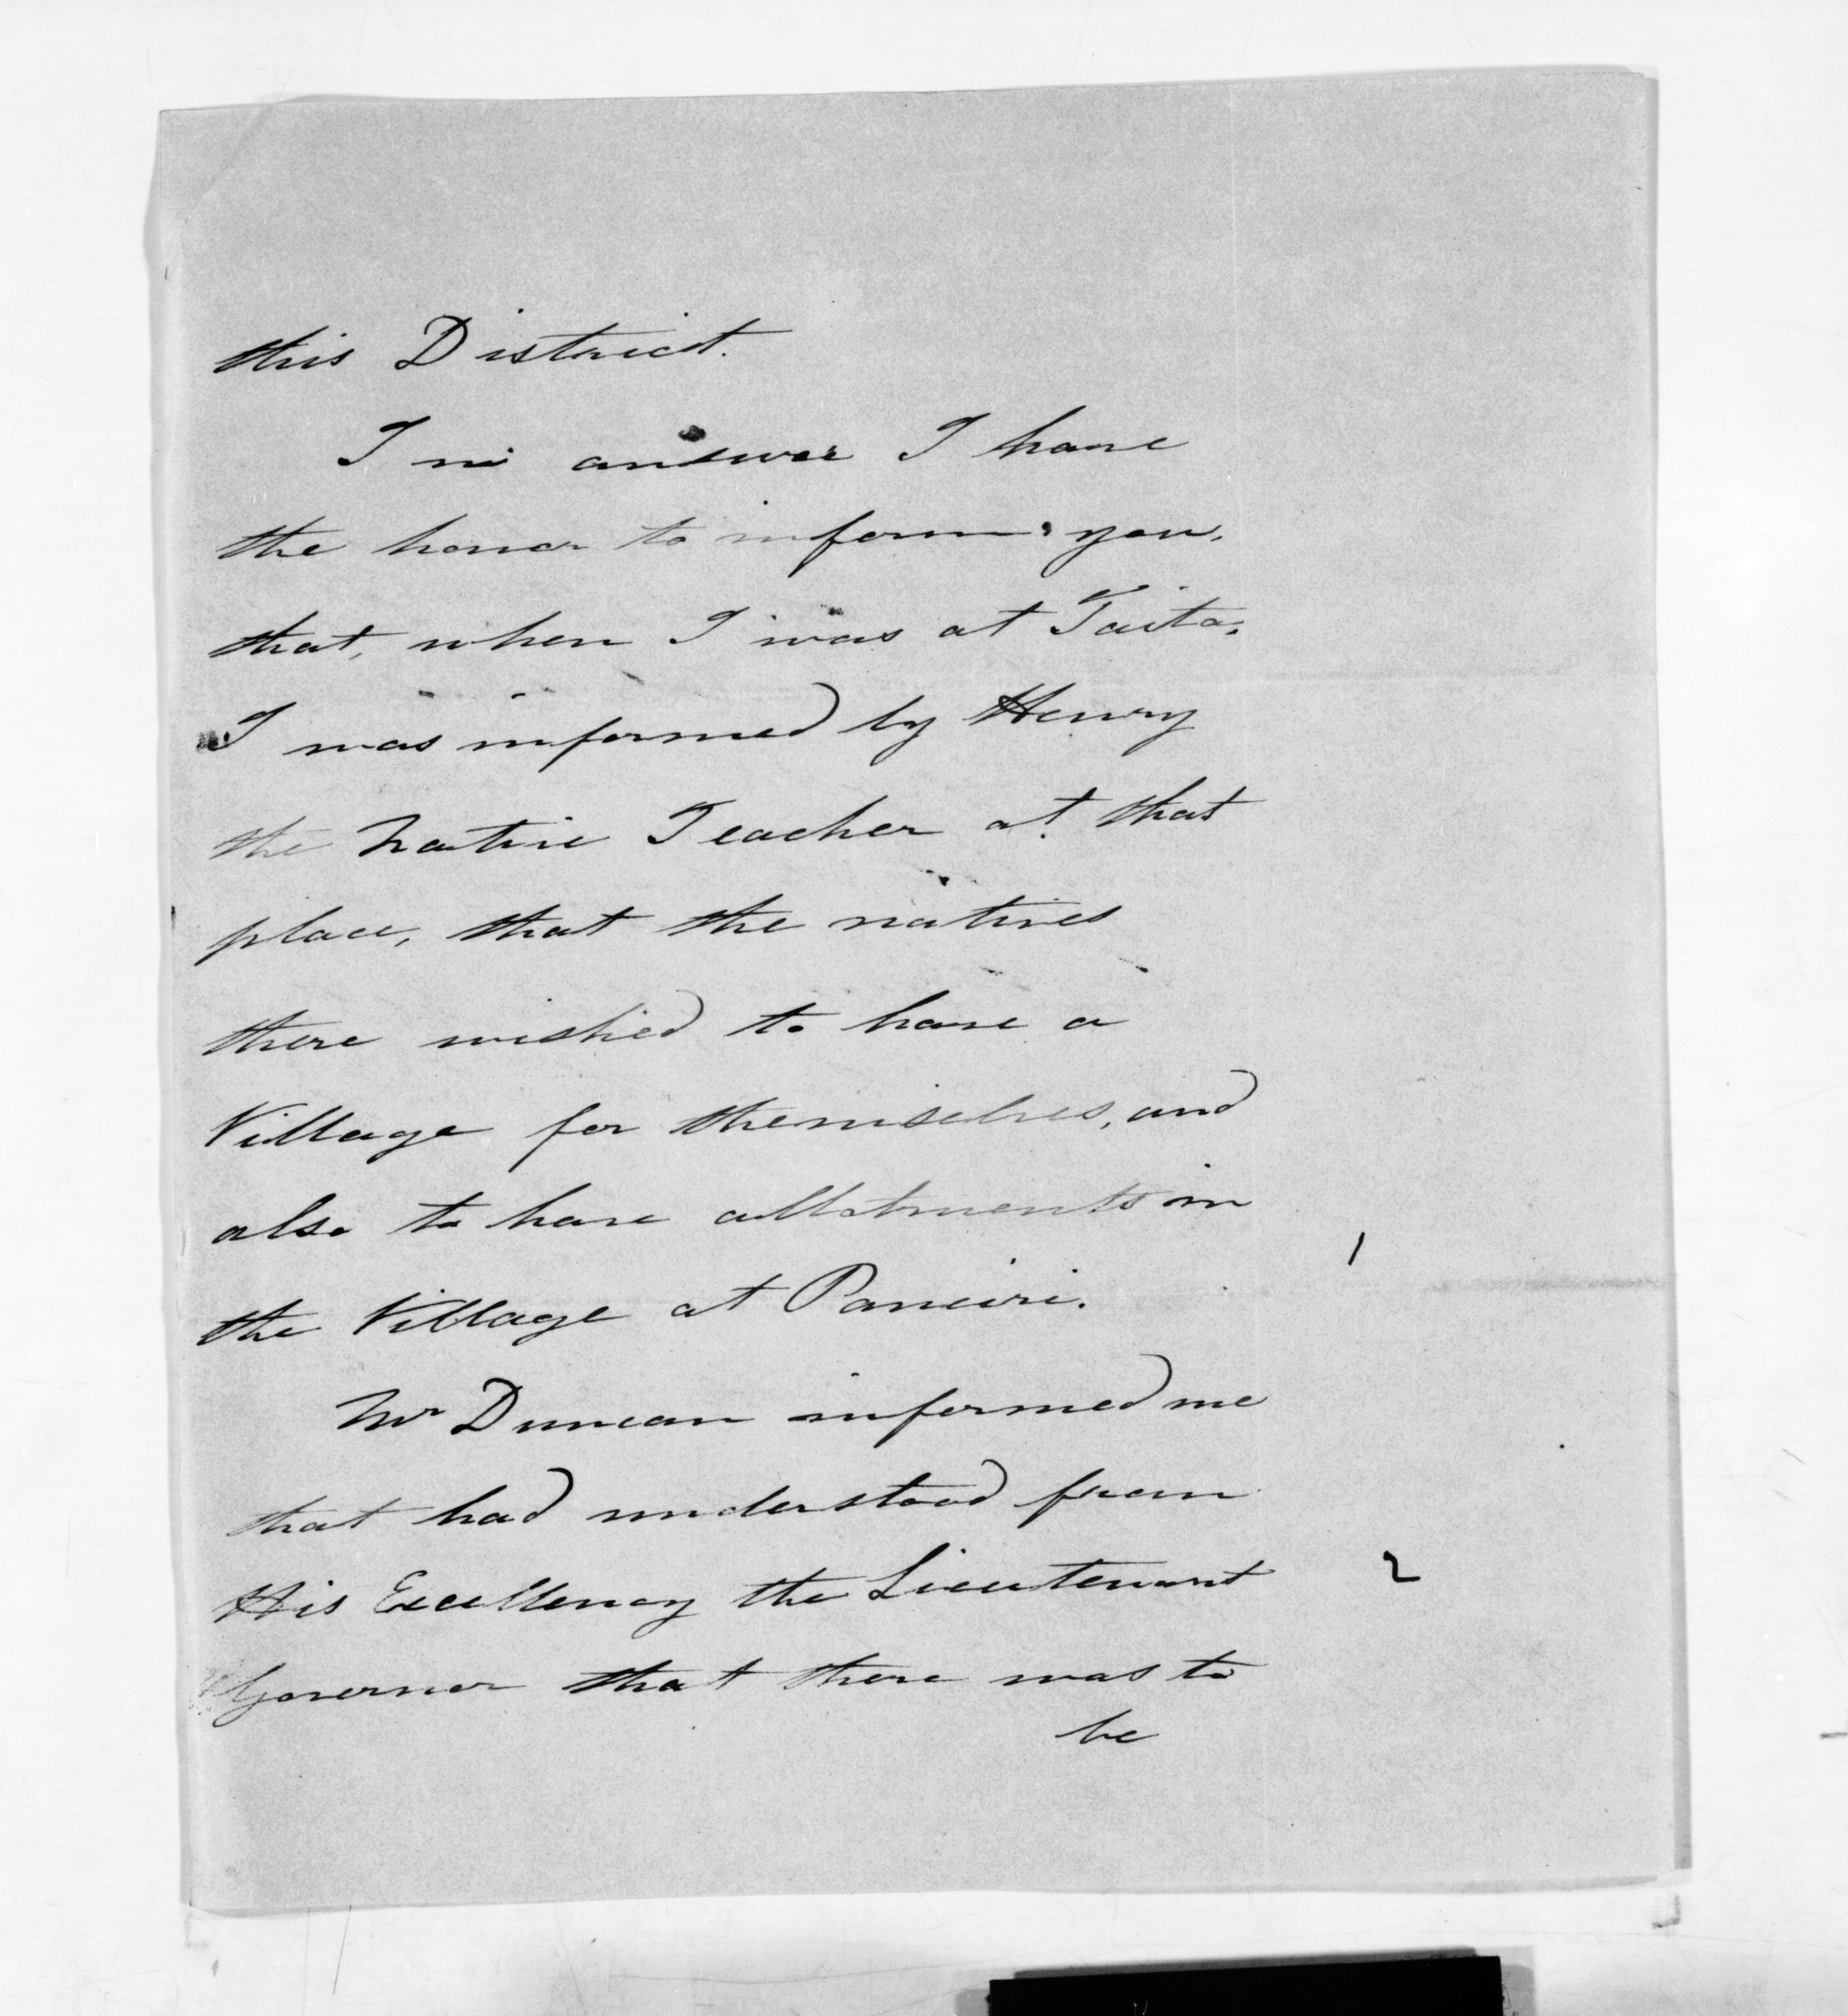 this District.
I in answer I have
the honor to inform you,
that, when I was at Taita,
I was informed by Henry
the Native Teacher at that
place, that the natives
there wished to have a
Village for themselves, and
also to have allotments in
1
the Village at Paneiri.
Mr Duncan informed me
that had understood from
His Excellency the Lieutenant
2
Governor that there was to
be